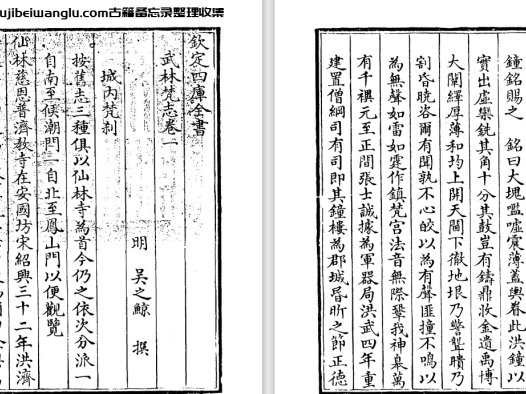 ujibeiwanglu.com古籍备忘录整理收集
鐘銘賜之　銘曰大塊噫噓震薄蓋輿眷此洪鐘以
實出虛欒銑其角十分其鼓豈有鑄鼎收金遺禹博
大闡繹厚薄和均上開天閶下徹地垠乃警聾聵乃
割昏曉咨爾有聞孰不心皎以為有聲匪撞不鳴以
為無聲如雷如霆作鎮梵宮法音無際鞏我神皋萬
有千禩元至正間張士誠據為軍器局洪武四年重
建置僧綱司有司即其鐘樓為郡城昏昕之節正德
欽定四庫全書
武林梵志卷一
明　吳之鯨　撰
城內梵刹
按舊志三種俱以仙林寺為首今仍之依次分派一
自南至候潮門一自北至鳳山門以便觀覽
仙林慈恩普濟教寺在安國坊宋紹興三十二年洪濟